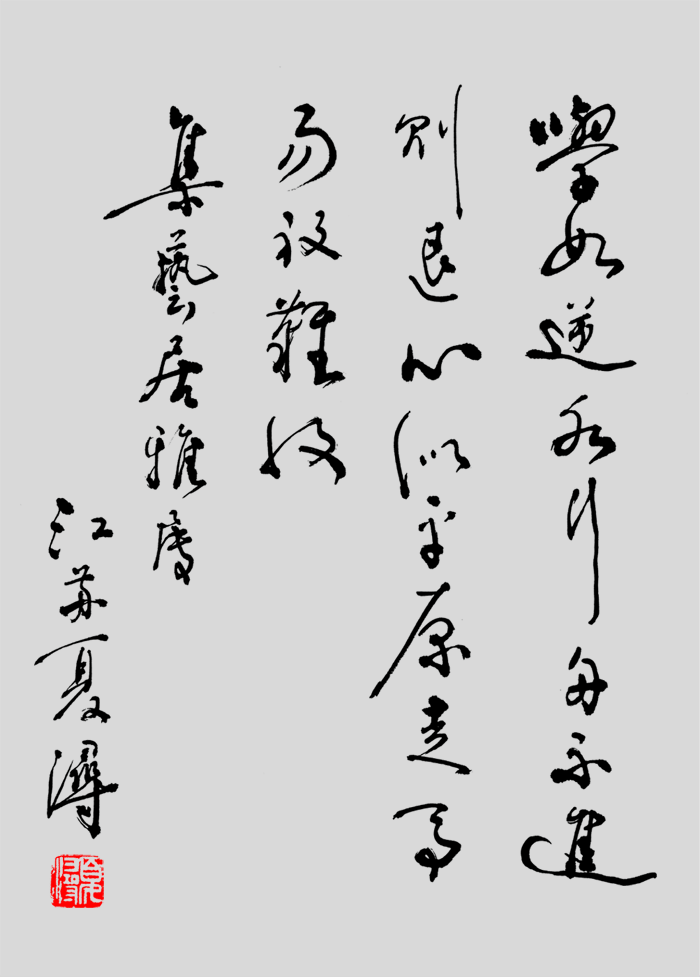 學如逆水行舟不進
則退心似平原走馬
易放難收
集藝居雅屬
江苏夏潯
夏潯